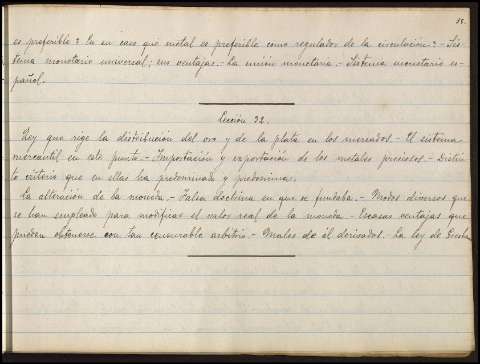 es preferible? En su caso qué metal es preferible como regulador de la circulación? - Sis-
tema monetario universal; sus ventajas. - La unión monetaria. - Sistema monetario es-
pañol.
Lección 32.
Ley que rige la distribución del oro y de la plata en los mercados. - El sistema
mercantil en este punto. - Importación y exportación de los metales preciosos. - Distin-
to criterio que en ellas ha predominado y predomina.
La alteración de la moneda. - Falsa doctrina en que se fundaba. - Modos diversos que
se han empleado para modificar el valor real de la moneda. - Escasas ventajas que
pueden obtenerse con tan censurable arbitrio. - Males de él derivados. - La ley de Gresham